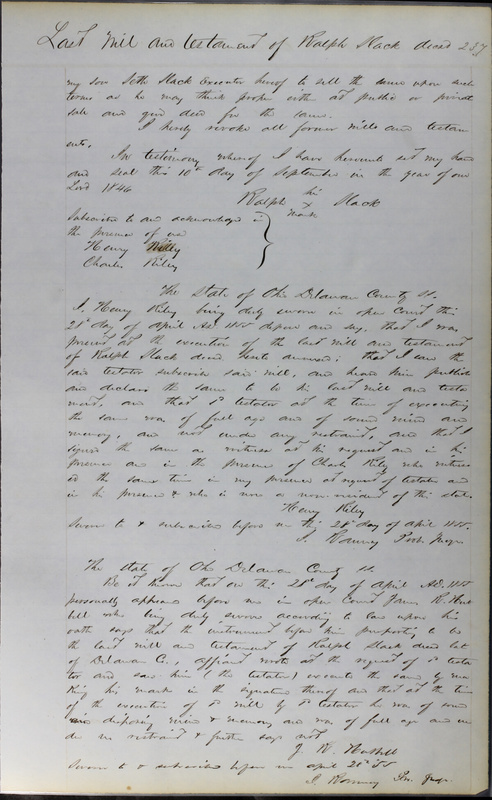 Last Will and testament of Ralph Slack deced 237
my son Seth Slack Executor hereof to sell the same upon such
terms as he may think proper either at public or private
sale and give deed for the same.
I hereby revoke all former wills and testam
ents.
In testimony whereof I have hereunto set my hand
and seal this 10th day of September in the year of our
Lord 1846
Ralph his X mark Slack
Subscribed to and acknowledged in
the presence of us
Henry Riley
Charles Riley
The State of Ohio Delaware County ss.
I, Henry Riley being duly sworn in open Court this
28th day of April AD. 1855 depose and say, that I was
present at the execution of the last will and testament
of Ralph Slack deced hereto annexed: that I saw the
said testator subscribe said will, and heard him publish
and declare the same to be his last will and testa
ment, and that sd testator at the time of executing
the same was of full age and of sound mind and
memory, and not under any restraint, and that I
signed the same as witness at his request and in his
presence and in the presence of Charles Riley who witness
ed the same time in my presence at request of testator and
in his presence & who is now a non-resident of this state.
Henry Riley
Sworn to & subscribed before me this 28th day of April 1855.
Prob. Judge
The state of Ohio Delaware County ss
Be it known that on this 28th day of April AD. 1855
personally appeared before me in open Court James R. Hub
bell who being duly sworn according to law upon his
oath says that the instrument before him purporting to be
the last will and testament of Ralph Slack deced late
of Delaware Co., affiant wrote at the request of sd testa
tor and saw him (the testator) execute the same by ma
king his mark in the signature thereof and that at the time
of the execution of sd will by sd testator he was of sound
disposing mind & memory and was of full age and un
der no restraint & further says not
J. R. Hubbell
Sworn to & subscribed before me April 28th 55
Judge